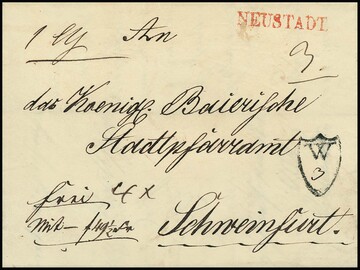 NEUSTADT
An
3
das Koenigl. Baierische
Stadtpfarramt
W
3
frei 4 x
Mit
Schweinfurt.